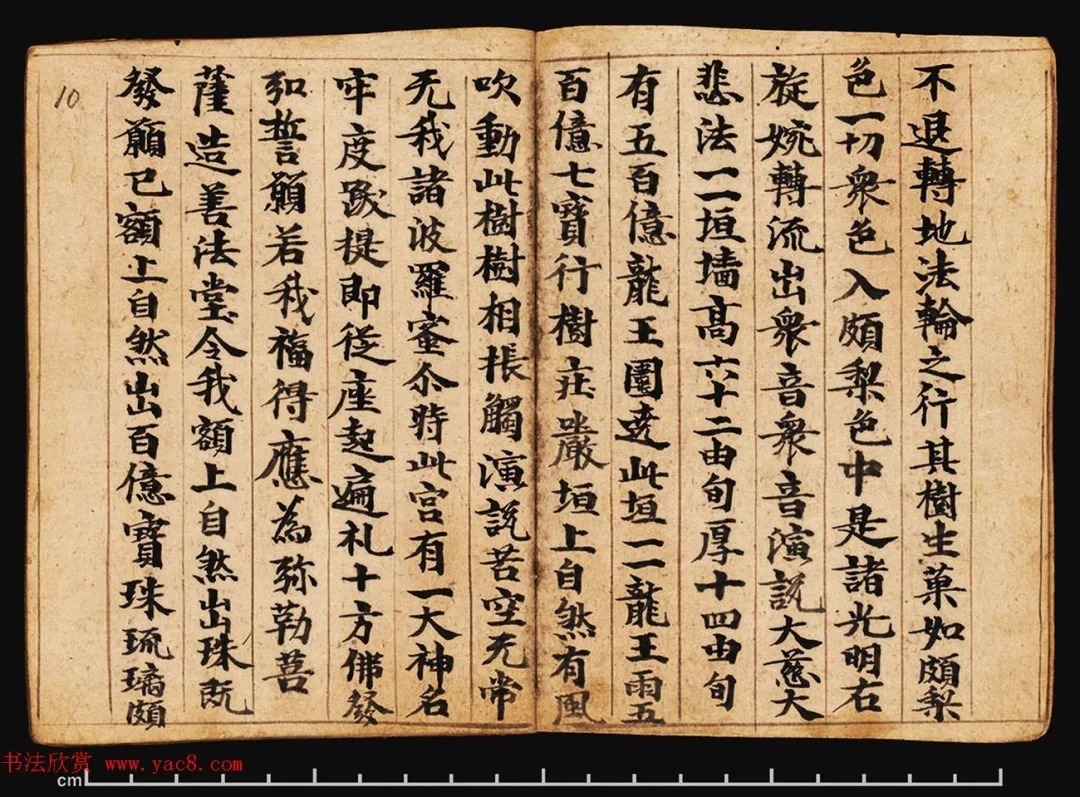 不退轉地法輪之行其樹生菓如頗梨
色一切衆色入頗梨色中是諸光明右
旋婉轉流出衆音衆音演説大慈大
悲法一一垣墻高六十二由旬厚十四由旬
有五百億龍王圍遶此垣一一龍王雨五
百億七寶行樹庄嚴垣上自然有風
吹動此樹樹相棖觸演説苦空无常
无我諸波羅蜜尒時此宫有一大神名
牢度跋提即従座起遍礼十方佛發
弘誓願若我福得應為弥勒菩
薩造善法堂令我額上自然出珠既
發願已額上自然出百億寶珠琉璃頗
10
书法欣赏 www.yac8.com
cm